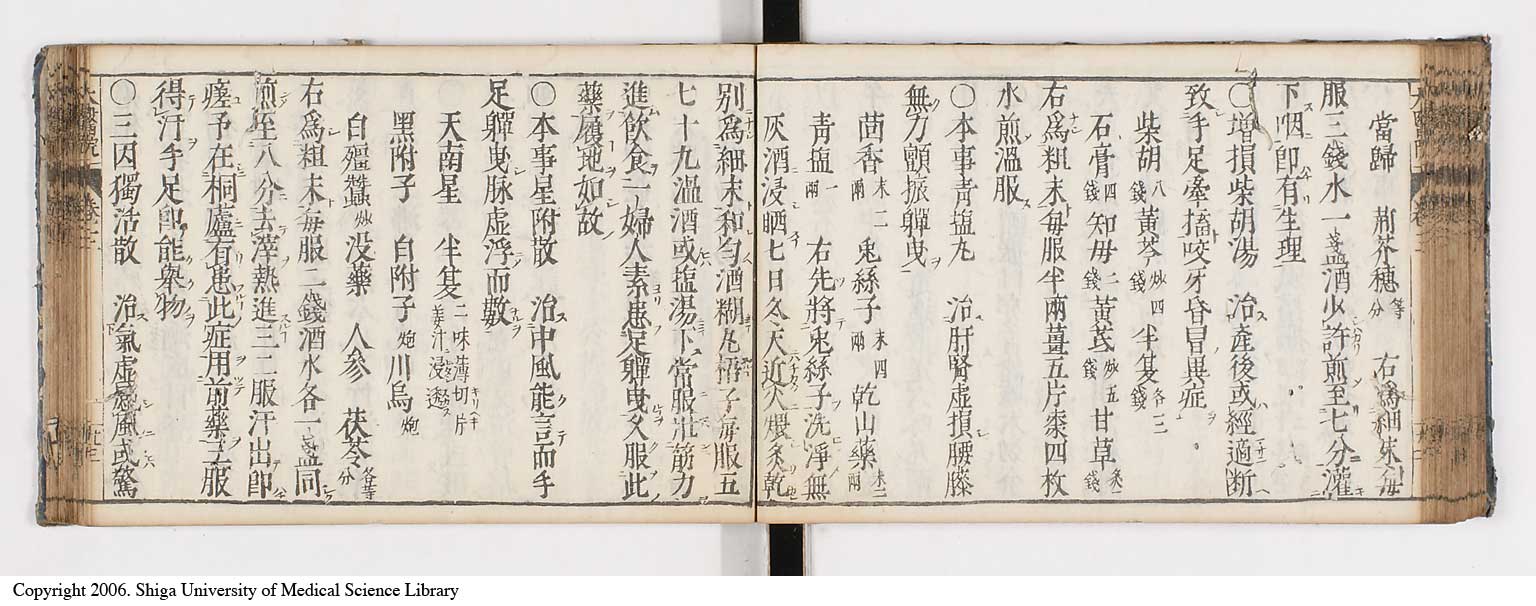 當歸　荊芥穗等分　右為細末每
服三錢水一盞酒少許前至七分灌
下咽即有生理
○增損柴胡湯　治產後或經適断
致手足牽搐咬牙昏冒異症
柴胡八錢黃芩炒四錢半夏各三錢
石膏四錢知母二錢黃芪炒五錢甘草炙一錢
右爲粗末每服半兩薑五片棗四枚
水煎溫服
○本事青塩丸　治肝腎虛損腰膝
無力顫振軃曳
茴香末二兩兎絲子末四兩乾山藥末二兩
青塩一兩　右先將兎絲子洗淨無
灰酒浸晒七日冬天近火煨炙乾
別爲細末和勻酒糊丸梧子每服五
七十九溫酒或塩湯下常服壯筋力
進飲食一婦人素患足軃曳久服此
藥履地如故
○本事星附散　治中風能言而手
足軃曳脉虛浮而數
天南星　半夏二味薄切片姜汁浸透
黑附子　白附子炮川烏炮
白殭蠶炒没藥　人參　茯苓各等分
右爲粗末每服二錢酒水各一盞同
煎至八分去滓熱進三二服汗出即
瘥予在桐廬有患此症用前藥三服
得汗手足即能舉物
○三因獨活散　治氣虛感風或驚